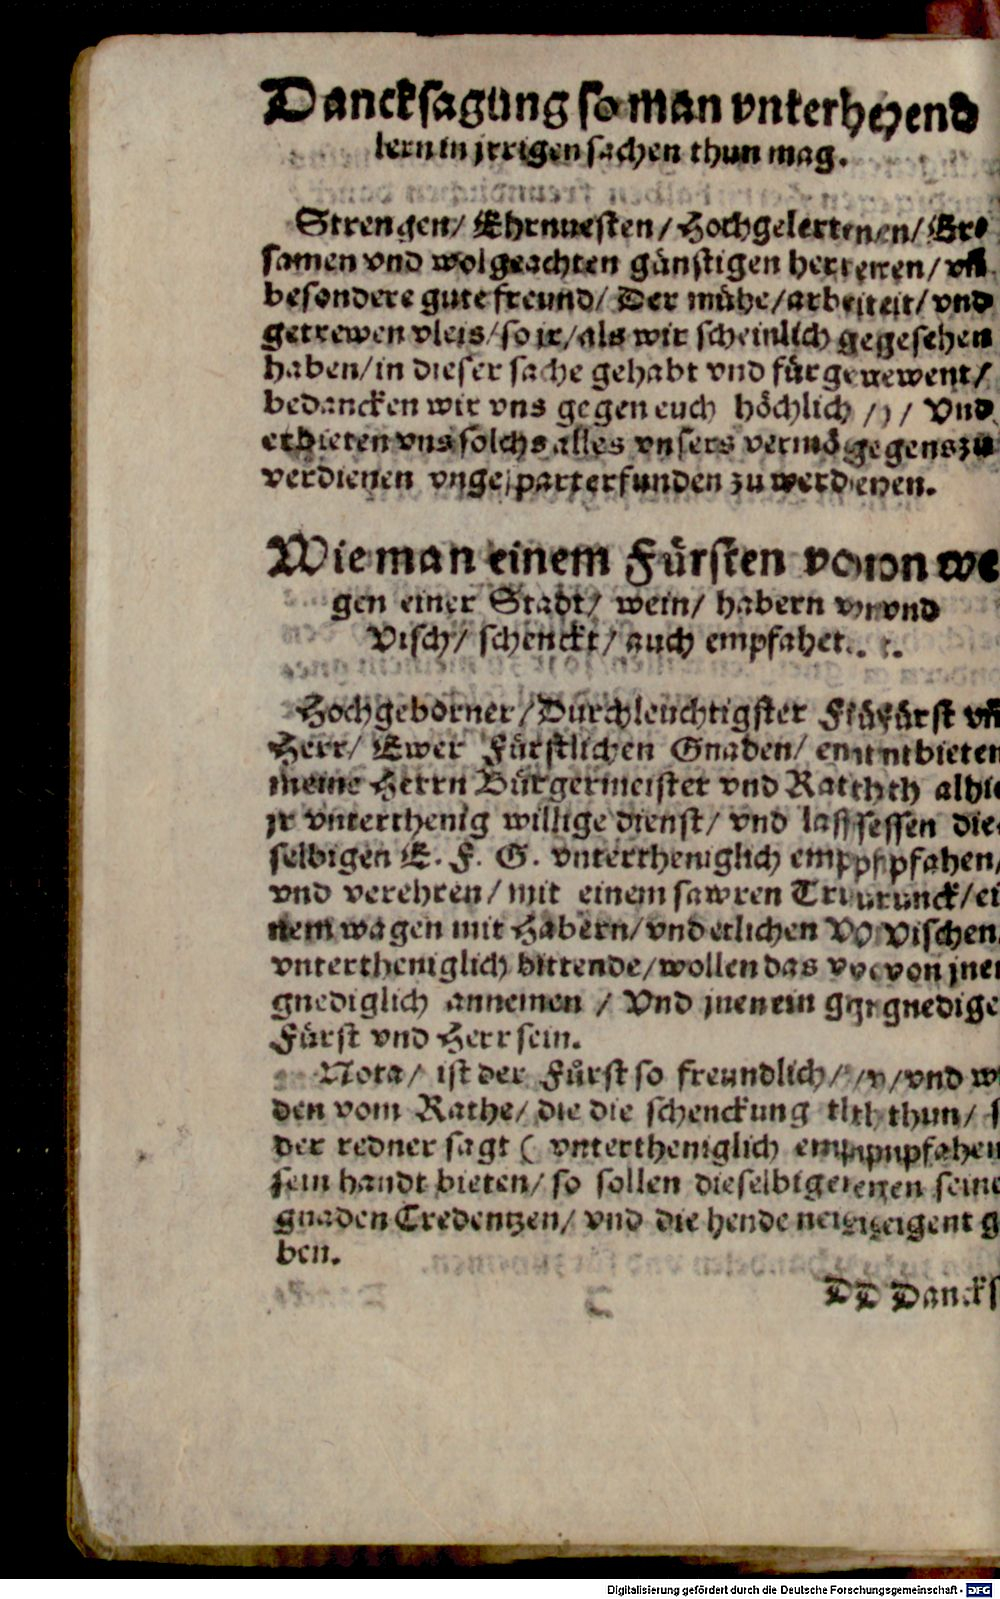 Dancksagung so man vnterhend
lern in jrrigen sachen thun mag.
Strengen/ Ehrnuesten/ Hochgelerten/ Er⸗
samen vnd wolgeachten günstigen herren/ vñ
besondere gute freund/ Der mühe/ arbeit/ vnd
getrewen vleis/ so ir/ als wir scheinlich gesehen
haben/ in dieser sache gehabt vnd fürgewent/
bedancken wir vns gegen euch höchlich/ Vnd
erbieten vns solchs alles vnsers vermögens zu
verdienen vngespart erfunden zu werden.
Wie man einem Fürsten von we
gen einer Stadt/ wein/ habern vnd
Visch/ schenckt/ auch empfahet.
Hochgeborner/ Durchleuchtigster Fürst vñ
Herr/ Ewer Fürstlichen Gnaden/ entbieten
meine Herrn Bürgermeister vnd Rath alhie
jr vnterthenig willige dienst/ vnd lassen die⸗
selbigen E. F. G. vntertheniglich empfahen/
vnd verehren/ mit einem sawren Trunck/ ei
nem wagen mit Habern/ vnd etlichen Vischen
vntertheniglich bittende/ wollen das von jnen
gnediglich annemen / Vnd jnen ein gnedige
Fürst vnd Herr sein.
Nota/ ist der Fürst so freundlich/ vnd w
den vom Rathe/ die die schenckung thun/ s
der redner sagt ( vntertheniglich empfahen
sein handt bieten/ so sollen dieselbigen seine
gnaden Credentzen/ vnd die hende neigent g
ben.
D Dancks
Digitalisierung gefördert durch die Deutsche Forschungsgemeinschaft - DFG